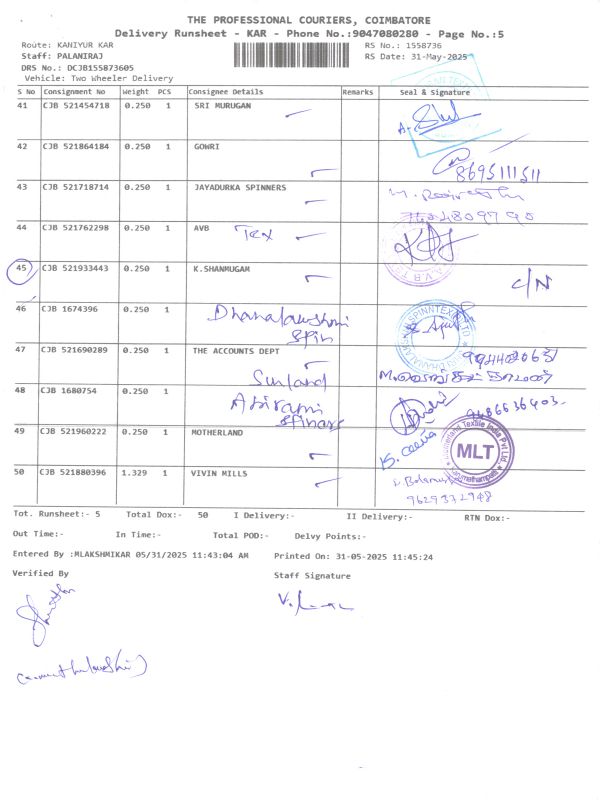 THE PROFESSIONAL COURIERS, COIMBATORE
Delivery Runsheet - KAR - Phone No.:9047080280 - Page No.:5
Route: KANIYUR KAR RS No.: 1558736
Staff: PALANIRAJ RS Date: 31-May-2025
DRS No.: DCJB155873605
Vehicle: Two Wheeler Delivery
S No Consignment No Weight PCS Consignee Details Remarks Seal & Signature
41 CJB 521454718 0.250 1 SRI MURUGAN
42 CJB 521864184 0.250 1 GOWRI
8695111511
43 CJB 521718714 0.250 1 JAYADURKA SPINNERS
44 CJB 521762298 0.250 1 AVB Tex
45 CJB 521933443 0.250 1 K.SHANMUGAM
C/N
46 CJB 1674396 0.250 1
Spin
47 CJB 521690289 0.250 1 THE ACCOUNTS DEPT
Sunland
48 CJB 1680754 0.250 1 Abirami
9486636403
49 CJB 521960222 0.250 1 MOTHERLAND
MLT
50 CJB 521880396 1.329 1 VIVIN MILLS
Tot. Runsheet:- 5 Total Dox:- 50 I Delivery:- II Delivery:- RTN Dox:-
Out Time:- In Time:- Total POD:- Delvy Points:-
Entered By :MLAKSHMIKAR 05/31/2025 11:43:04 AM Printed On: 31-05-2025 11:45:24
Verified By Staff Signature